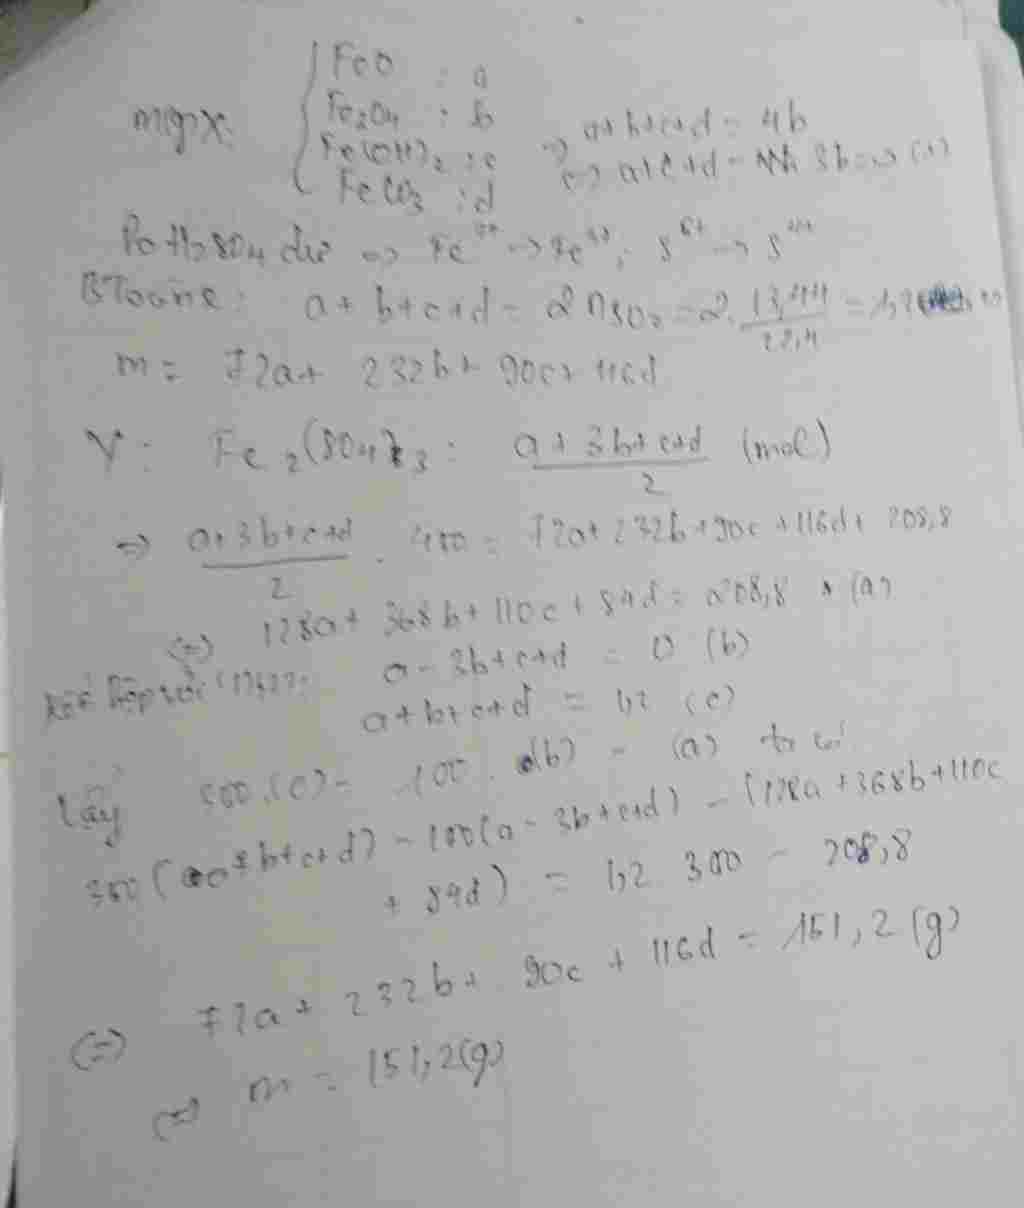 m g X: FeO : a
Fe3O4 : b
Fe(OH)2 : c
FeCO3 : d
=> a+b+c+d = 4b
<=> a+c+d = 3b => (1)
Do H2SO4 dư => Fe2+ -> Fe3+; S6+ -> S4+
BToàn e: a + b + c + d = 2nSO2 = 2. 13,44/22,4 = 1,2
m = 72a + 232b + 90c + 116d
Y: Fe2(SO4)3 : (a + 3b + c + d)/2 (mol)
=> (a + 3b + c + d)/2 . 400 = 72a + 232b + 90c + 116d + 208,8
(=) 128a + 368b + 110c + 84d = 208,8 (a)
Kết hợp với (1), (2): a - 3b + c + d = 0 (b)
a + b + c + d = 1,2 (c)
Lấy 300.(c) - 100.(b) - (a) ta có
300(a + b + c + d) - 100(a - 3b + c + d) - (128a + 368b + 110c
+ 84d) = 1,2 300 - 208,8
(=) 72a + 232b + 90c + 116d = 151,2 (g)
=> m = 151,2 (g)